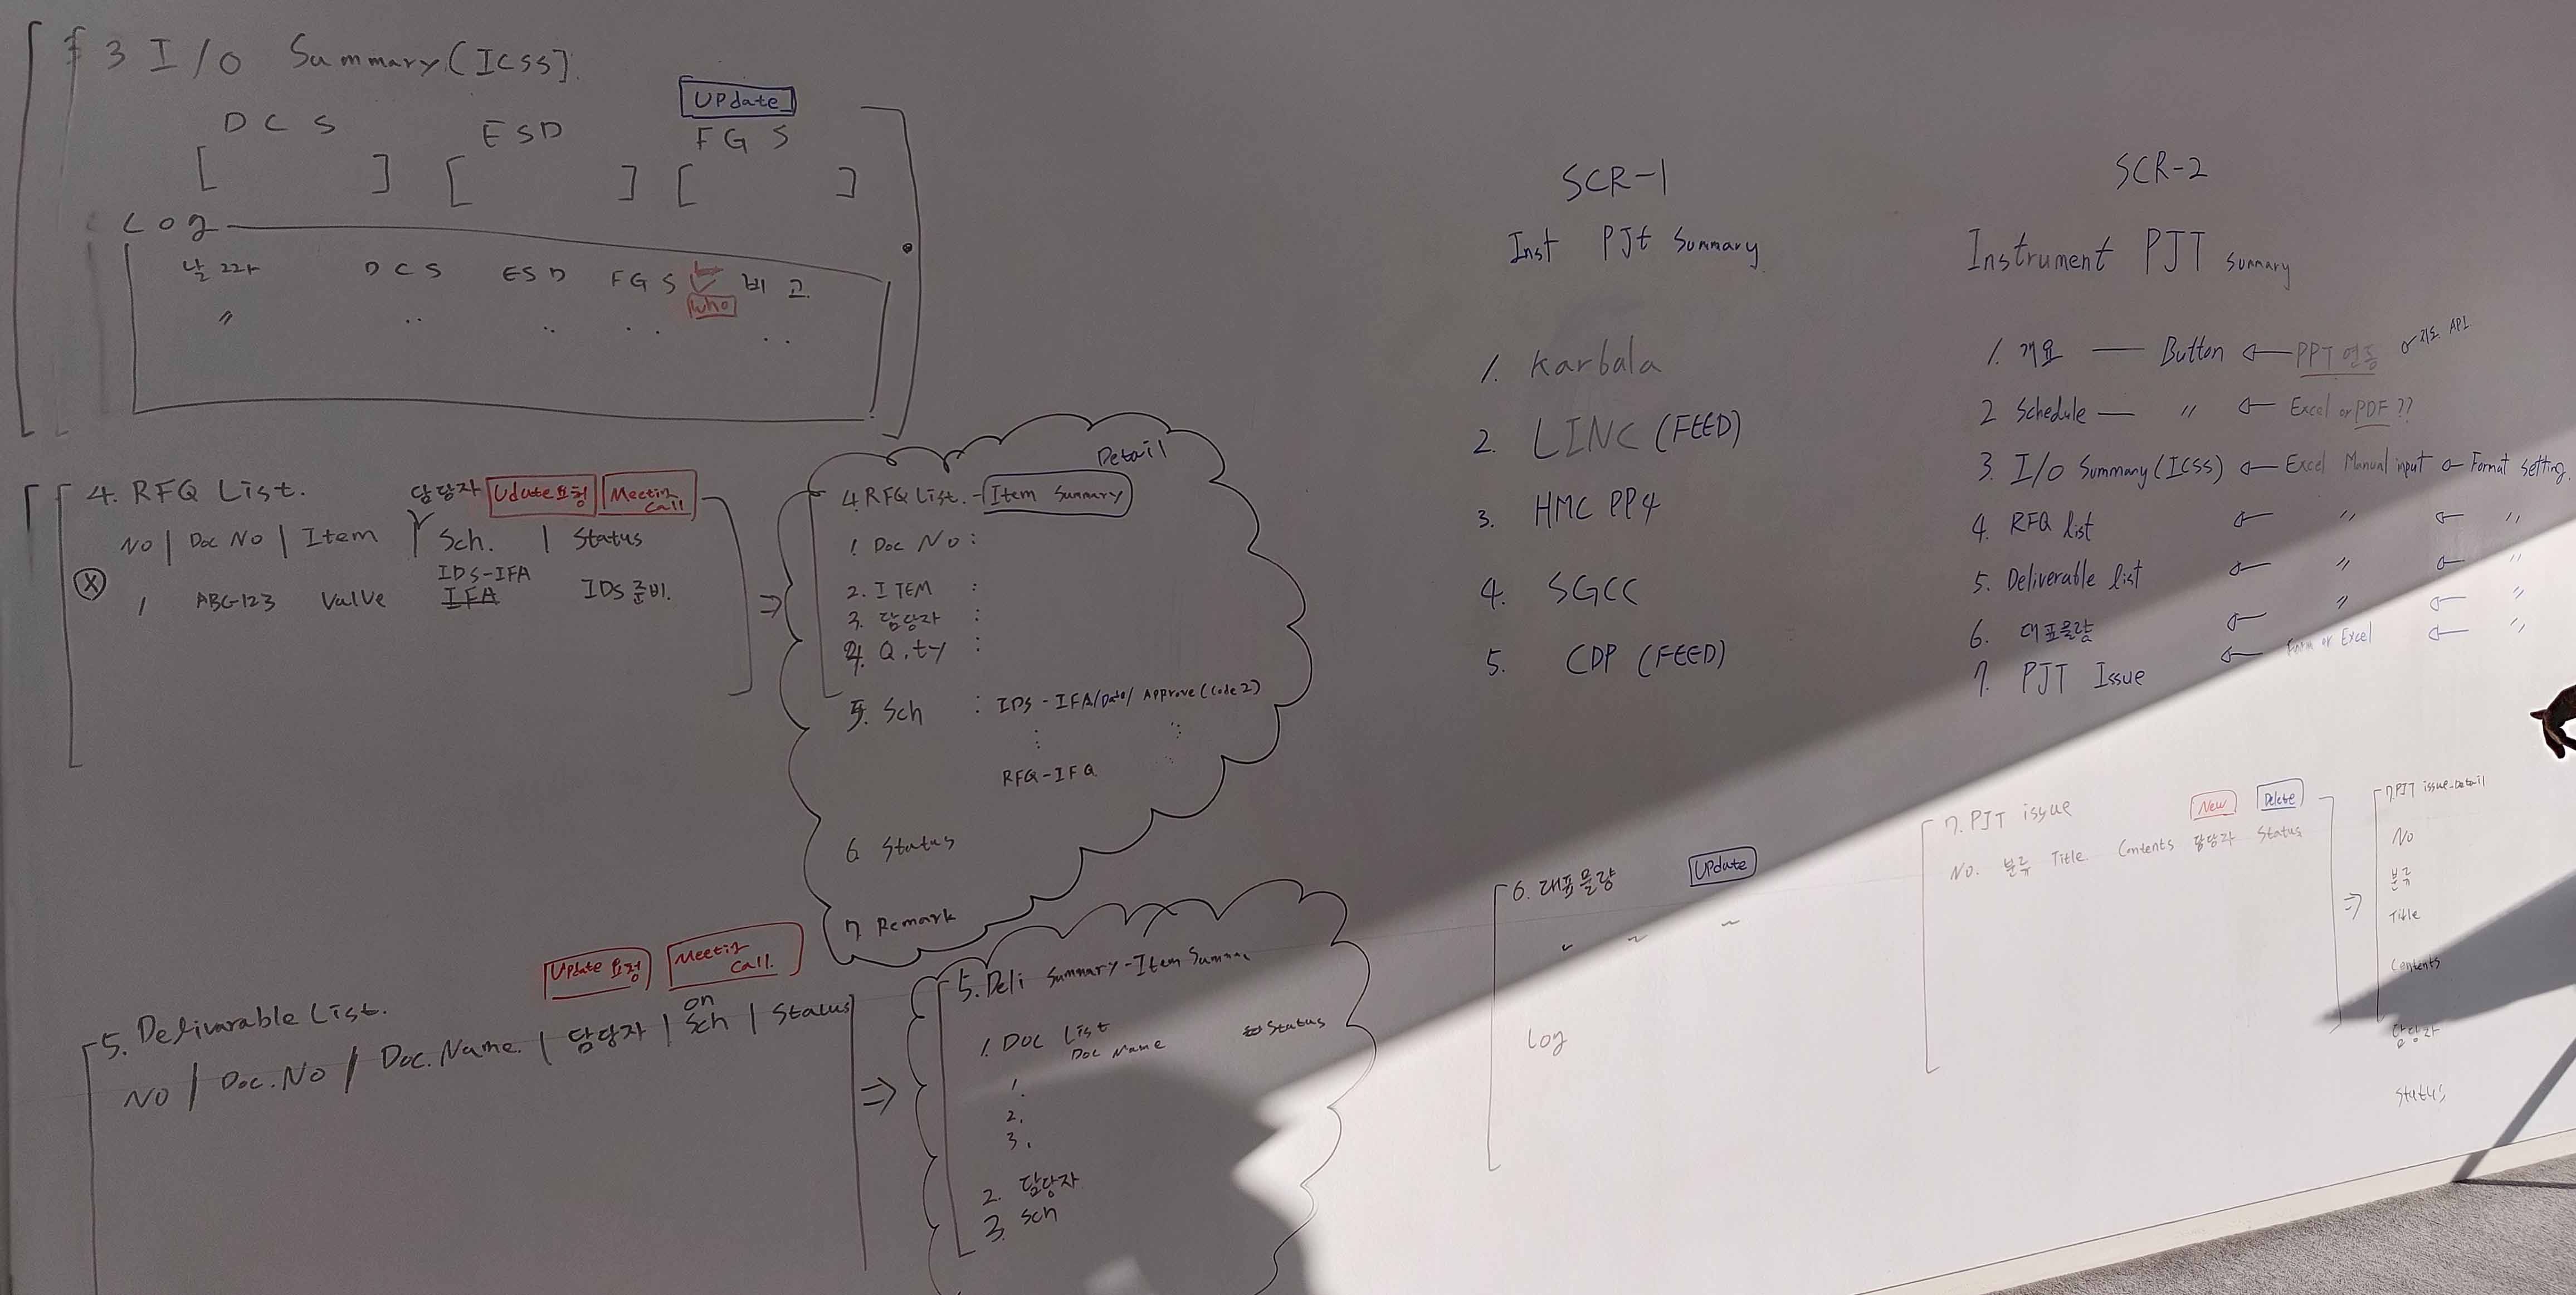 3 I/O Summary (ICSS)
Update
DCS ESD FGS
[ ] [ ] [ ]
Log
날짜 DCS ESD FGS 비고
Who
〃 .. .. .. ..
4. RFQ List.
담당자 Udate요청 Meeting Call
No | Doc No | Item | Sch. | Status
IDS-IFA
1 ABC-123 Valve IFA IDS 준비.
Detail
4. RFQ List. - Item Summary
1 Doc No :
2. ITEM :
3. 담당자 :
4. Q.ty :
5. Sch : IDS - IFA/Date/ Approve (Code 2)
RFQ-IFQ
6. Status
7. Remark
Update 요청 Meeting Call.
5. Delivarable List.
on
No | Doc.No | Doc.Name. | 담당자 | Sch | Status
5. Deli Summary-Item Summa
1. Doc List Status
Doc Name
1.
2.
3.
2. 담당자
3. Sch
SCR-1
Inst PJt Summary
1. Karbala
2. LINC (FEED)
3. HMC PP4
4. SGCC
5. CDP (FEED)
SCR-2
Instrument PJT Summary
1. 개요 — Button ← PPT 연동 ← 지도 API
2 Schedule — 〃 ← Excel or PDF ??
3. I/O Summary (ICSS) ← Excel Manual input ← Format setting.
4. RFQ list ← 〃 ← 〃
5. Deliverable list ← 〃 ← 〃
6. 대표물량 ← 〃 ← 〃
7. PJT Issue ← Form or Excel ← 〃
6. 대표물량 Update
Log
7. PJT issue New Delete
No. 분류 Title. Contents 담당자 Status
7.PJT issue-Detail
No
분류
Title
Contents
담당자
Status